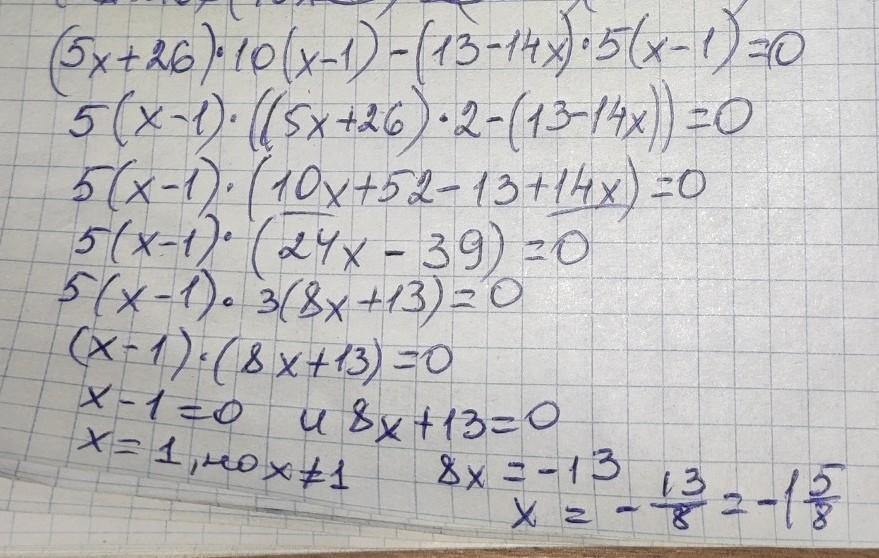 (5x+26)·10(x-1)-(13-14x)·5(x-1)=0
5(x-1)·((5x+26)·2-(13-14x))=0
5(x-1)·(10x+52-13+14x)=0
5(x-1)·(24x-39)=0
5(x-1)·3(8x+13)=0
(x-1)·(8x+13)=0
x-1=0 и 8x+13=0
x=1, но x≠1 8x=-13
x=-13/8=-1 5/8